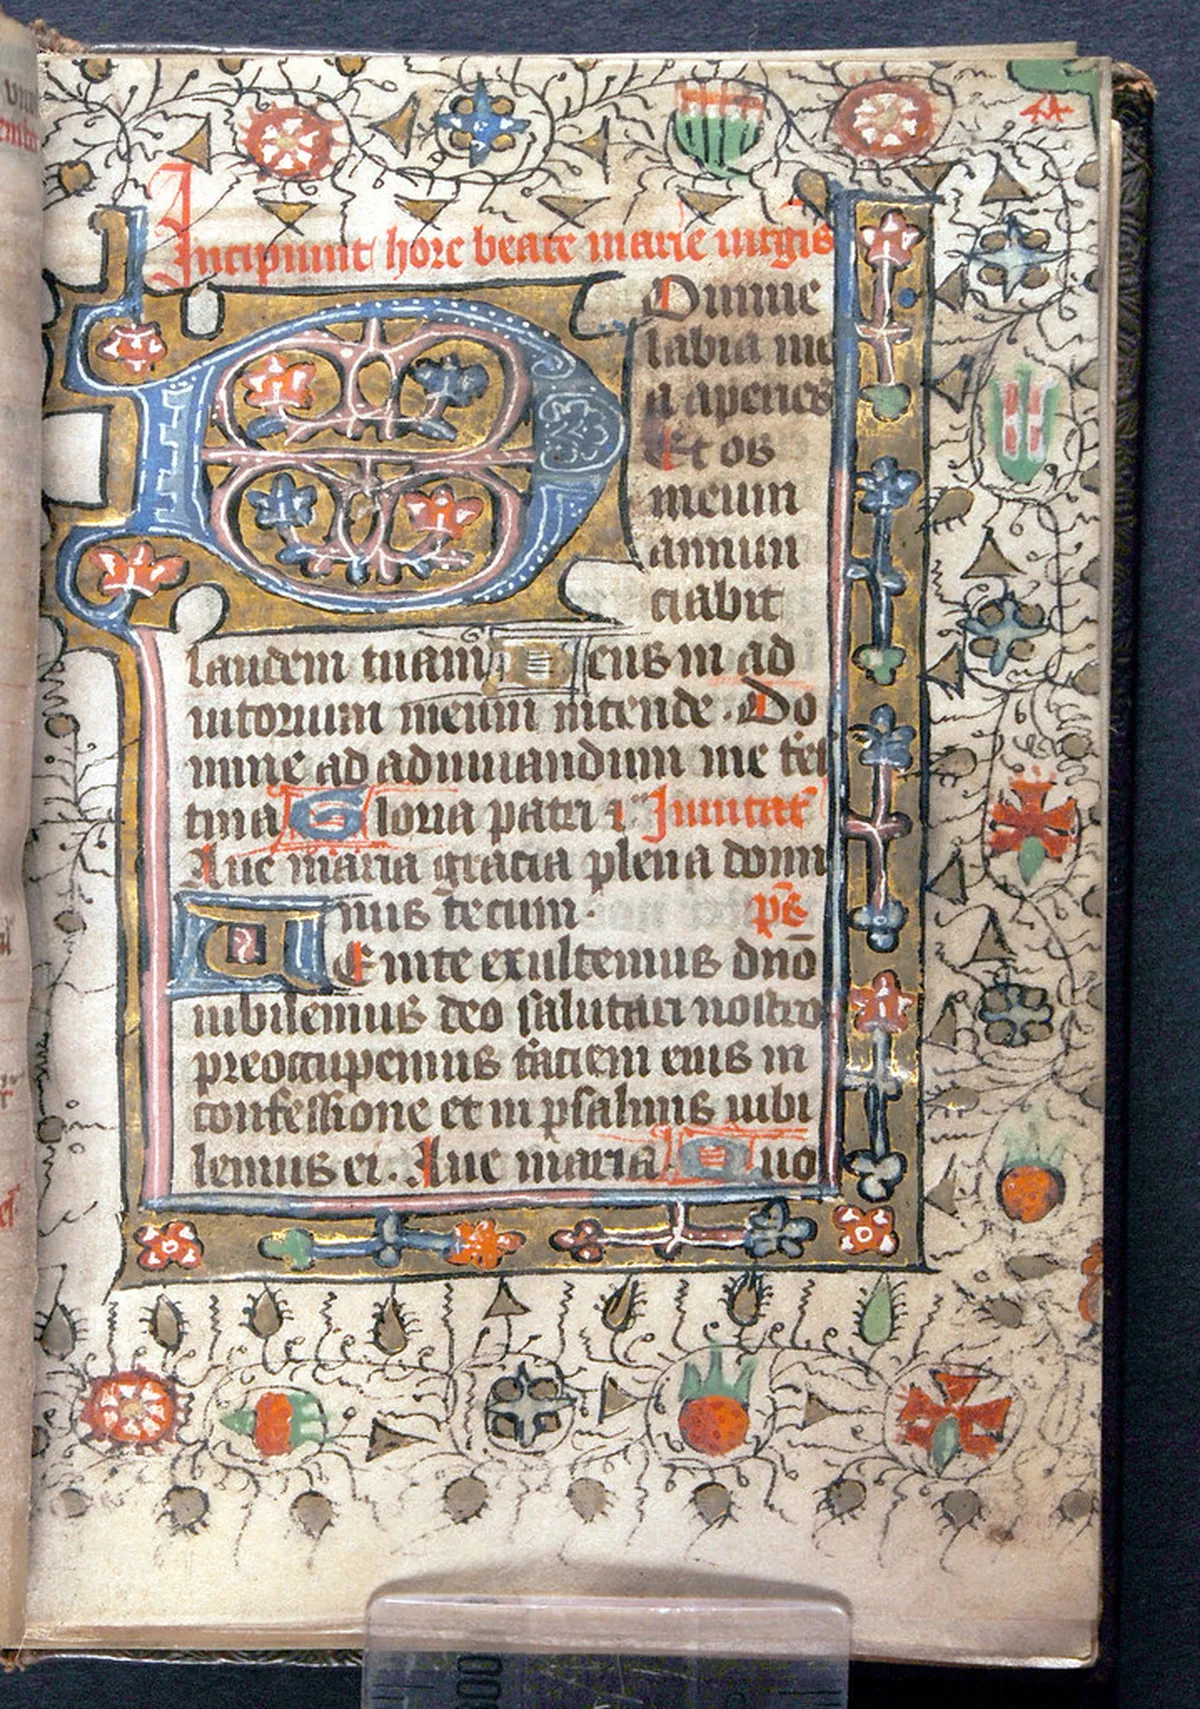 Incipiunt hore beate marie uirgis
Domine
labia me
a aperies
Et os
meum
annun
ciabit
laudem tuam Deus in ad
iutorium meum intende. Do
mine ad adiuuandum me fes
tina Gloria patri ⁊ Inuitat
Aue maria gracia plena domi
nus tecum. ps̄
Venite exultemus dn̄o
iubilemus deo salutari nostro
preoccupemus faciem eius in
confessione et in psalmis iubi
lemus ei. Aue maria. Quo